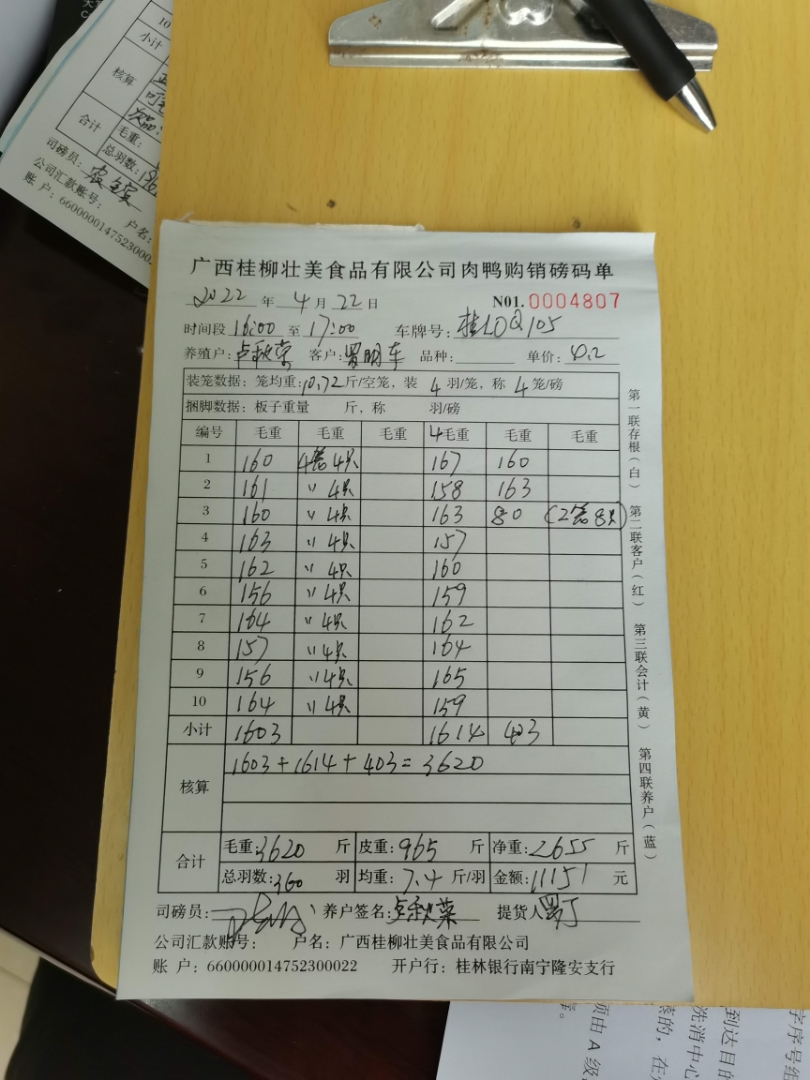 小计
核算
合计
毛重:
总羽数:
司磅员:
公司汇款账号: 户名:
账 户: 6600000147523000
广西桂柳壮美食品有限公司肉鸭购销磅码单
2022 年 4 月 22 日 N01. 0004807
时间段 16:00 至 17:00 车牌号: 桂LDQ105
养殖户: 卢秋荣 客户: 品种: 单价: 4.2
装笼数据: 笼均重: 10.72 斤/空笼, 装 4 羽/笼, 称 4 笼/磅
捆脚数据: 板子重量 斤, 称 羽/磅
编号 毛重 毛重 毛重 4毛重 毛重 毛重
1 160 4笼4只 167 160
2 161 〃 4只 158 163
3 160 〃 4只 163 80 (2笼8只)
4 163 〃 4只 157
5 162 〃 4只 160
6 156 〃 4只 159
7 164 〃 4只 162
8 157 〃 4只 164
9 156 〃 4只 165
10 164 〃 4只 159
小计 1603 1614 403
核算 1603+1614+403=3620
合计 毛重: 3620 斤 皮重: 965 斤 净重: 2655 斤
总羽数: 360 羽 均重: 7.4 斤/羽 金额: 11151 元
司磅员: 养户签名: 卢秋荣 提货人
公司汇款账号: 户名: 广西桂柳壮美食品有限公司
账 户: 660000014752300022 开户行: 桂林银行南宁隆安支行
第一联存根(白) 第二联客户(红) 第三联会计(黄) 第四联养户(蓝)
字序号组
到达目的
洗消中心